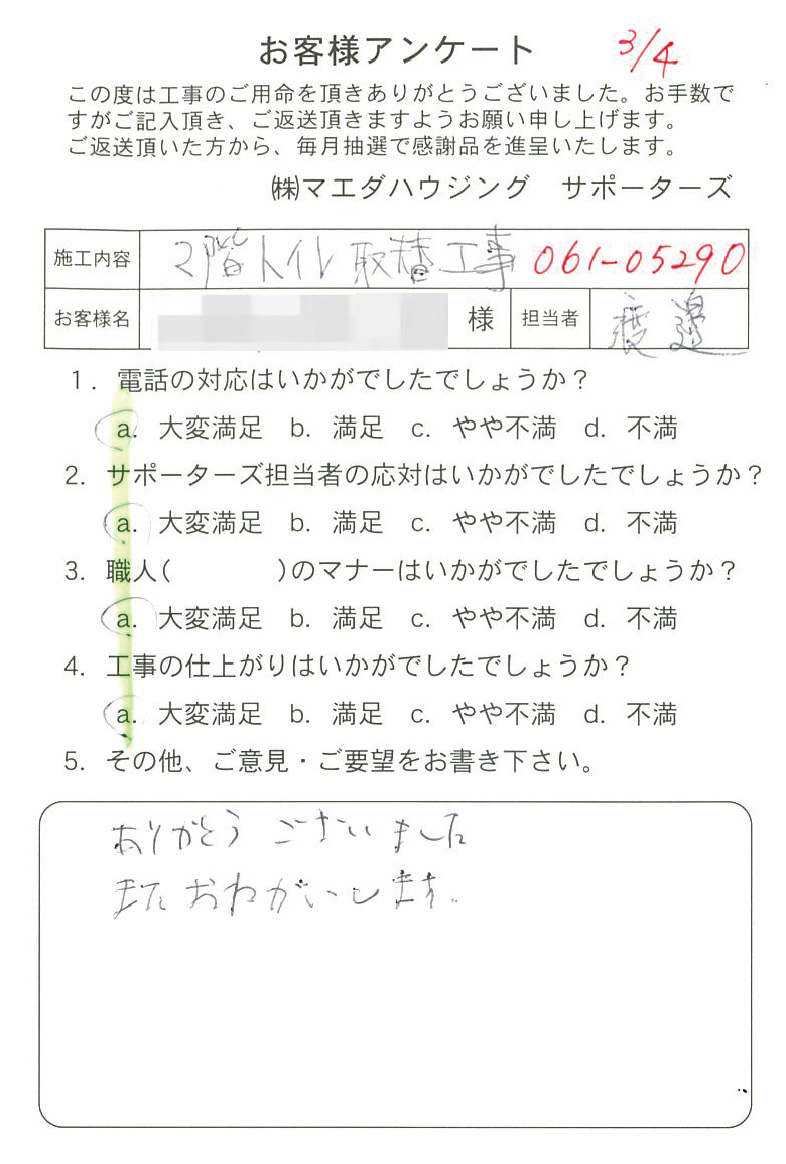 お客様アンケート 3/4
この度は工事のご用命を頂きありがとうございました。お手数で
すがご記入頂き、ご返送頂きますようお願い申し上げます。
ご返送頂いた方から、毎月抽選で感謝品を進呈いたします。
㈱マエダハウジング サポーターズ
施工内容 2階トイレ取替工事 061-05290
お客様名 様 担当者 渡邉
1. 電話の対応はいかがでしたでしょうか？
a. 大変満足 b. 満足 c. やや不満 d. 不満
2. サポーターズ担当者の応対はいかがでしたでしょうか？
a. 大変満足 b. 満足 c. やや不満 d. 不満
3. 職人( )のマナーはいかがでしたでしょうか？
a. 大変満足 b. 満足 c. やや不満 d. 不満
4. 工事の仕上がりはいかがでしたでしょうか？
a. 大変満足 b. 満足 c. やや不満 d. 不満
5. その他、ご意見・ご要望をお書き下さい。
ありがとうございました
またおねがいします。